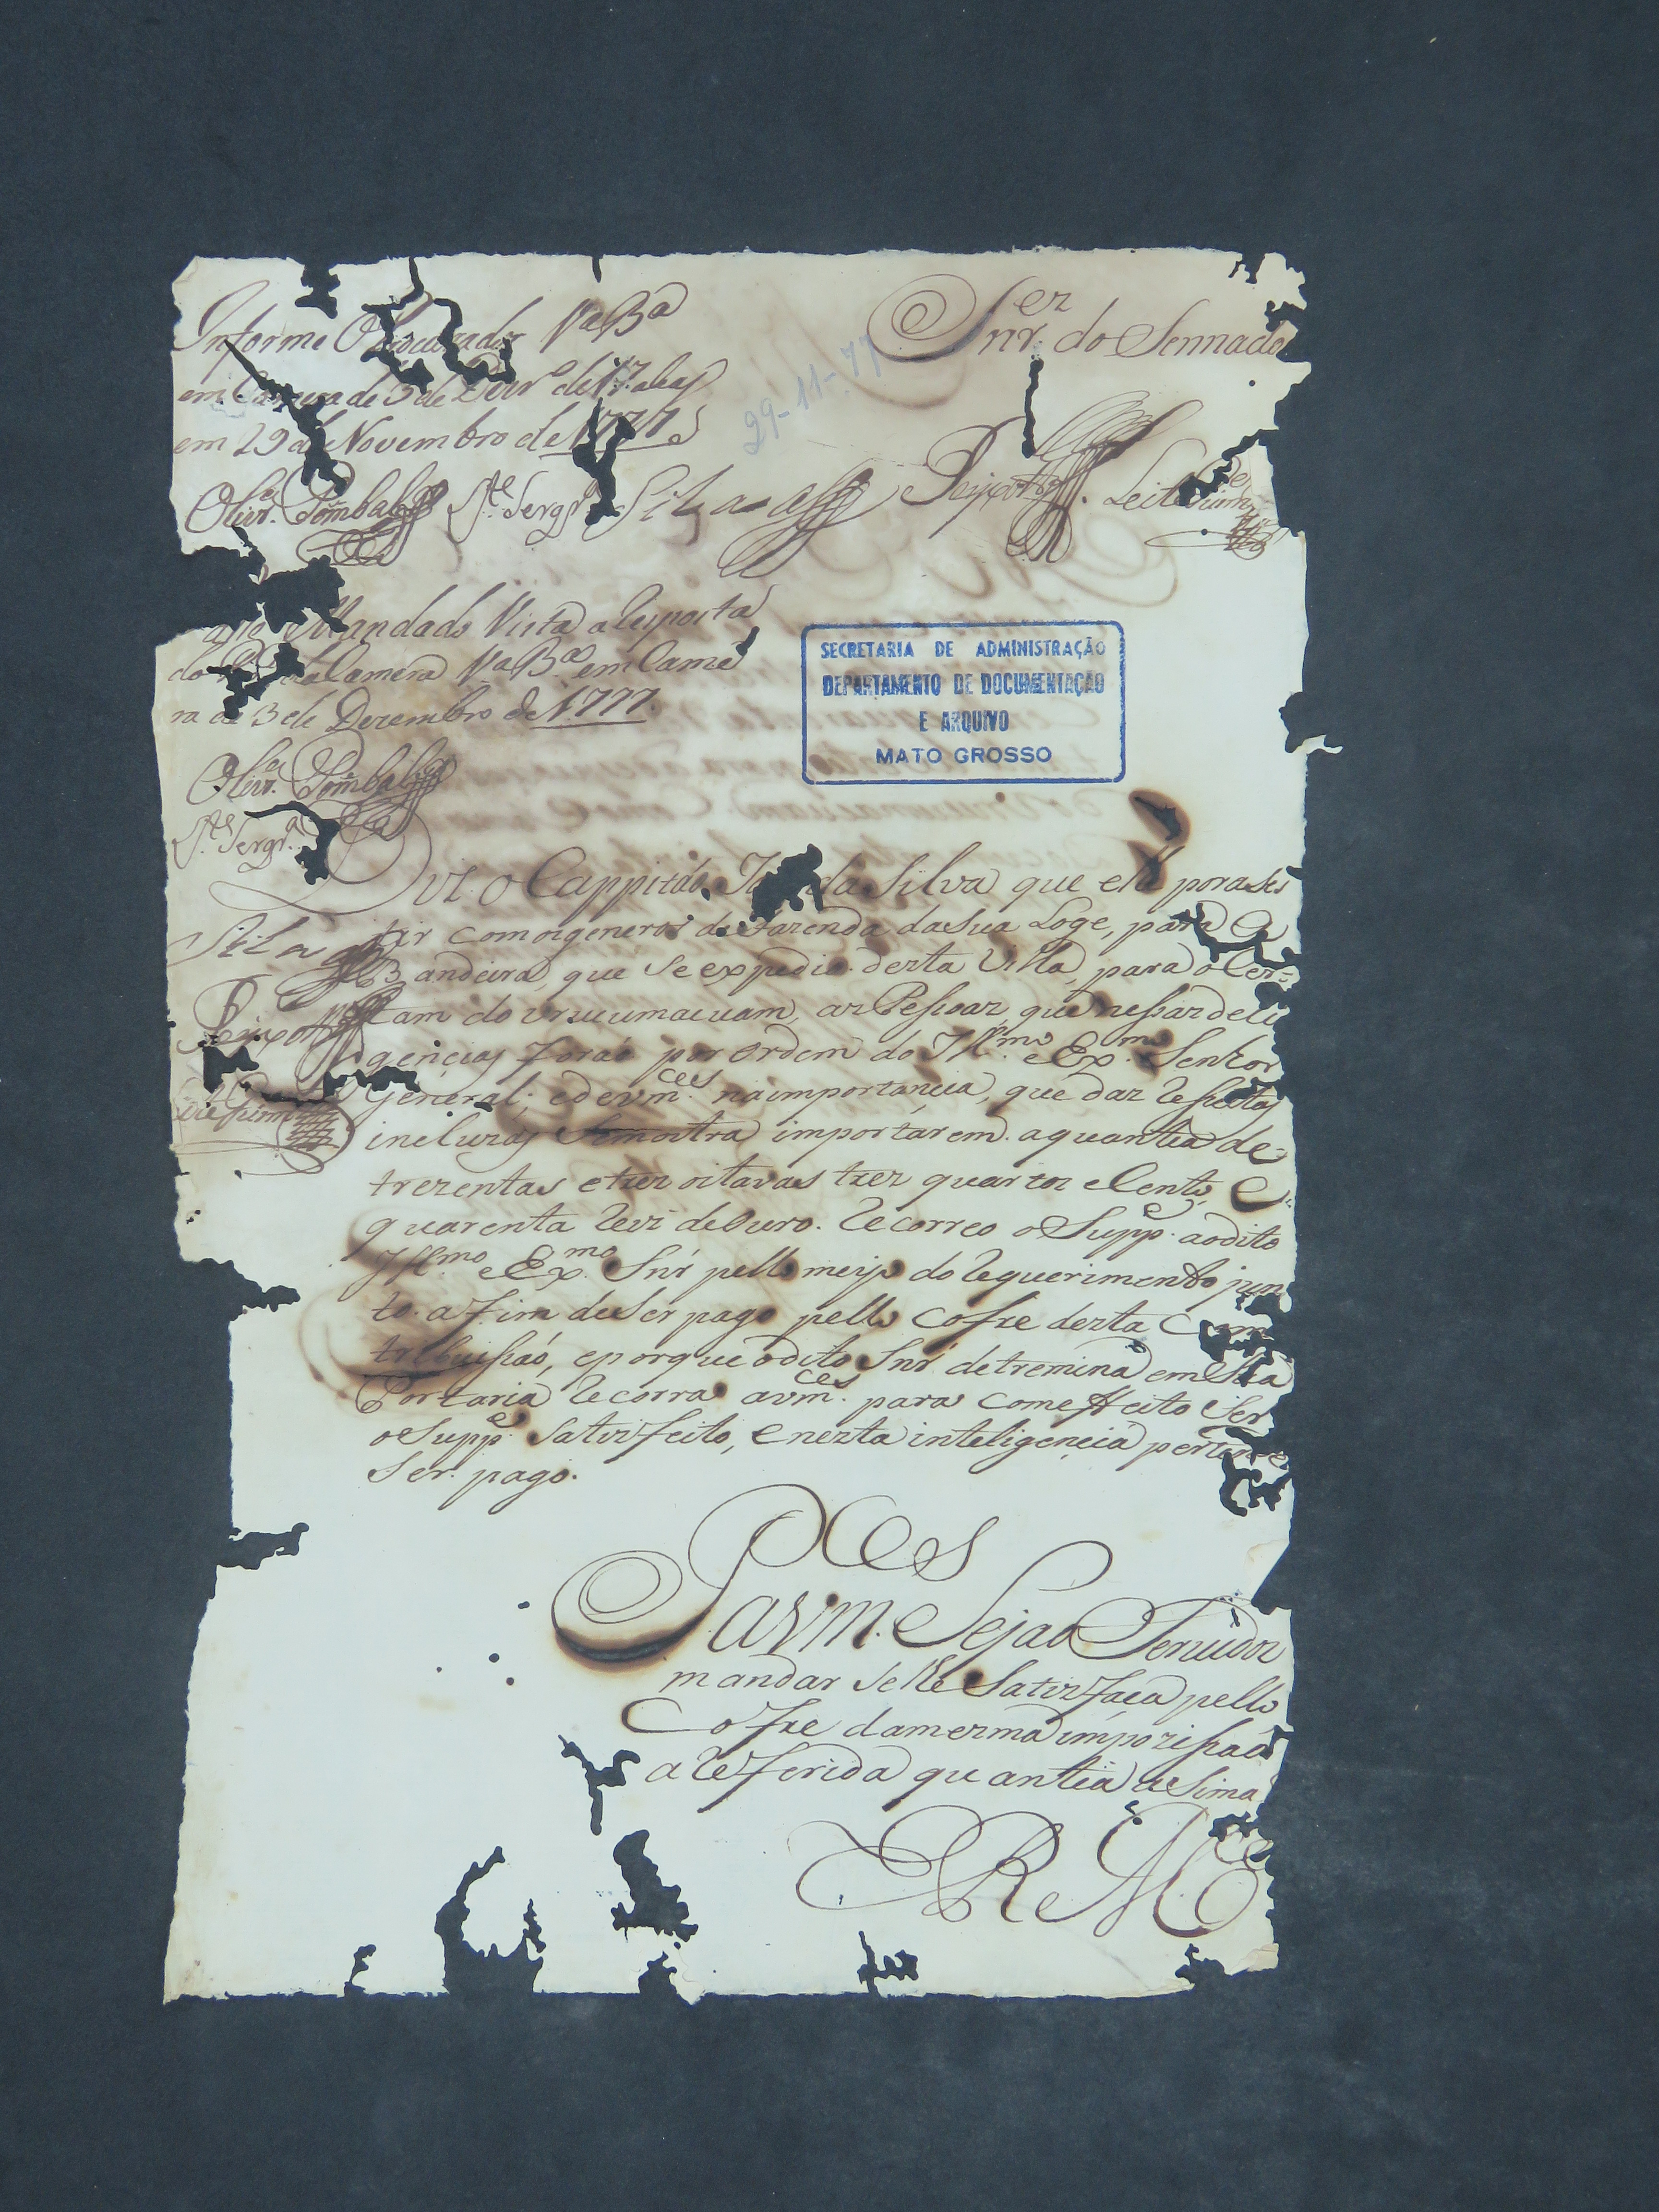 Informe O Procurador Va Bª
em Camera de 3 de Dezrº de 1777
em 29 de Novembro de 1777
29-11-77
Snrez do Sennado
Olivrª Pombal Silva Peixoto Leite
Mandado Vista a Resposta
do da Camera Va Bª em Came
ra de 3 de Dezembro de 1777.
Olivrª Pombal
SECRETARIA DE ADMINISTRAÇÃO
DEPARTAMENTO DE DOCUMENTAÇÃO
E ARQUIVO
MATO GROSSO
Silva
Peixoto
Diz o Cappitão da Silva que elle por asis
tir com os generos de fazenda da sua Loge, para a
Bandeira, que se expedio desta Villa, para o Cer=
tam do Urucumacuam, as Pessoas, que nessas deli
gencias forão por ordem do Illmo e Exmo Senhor
General, e de vmces na importancia, que das Resseitas
incluzas Semostra importarem a quantia de
trezentas e trez oitavas trez quartos e Cento, e
quarenta Reis de Ouro. Recorreo o Suppe ao dito
Illmo e Exmo Snr pello meyo do Requerimento jun
to a fim de Ser pago pello Cofre desta Con
tribuissaó, e porque o dito Snr detremina em Sua
Portaria Recorra a vmces para com effeito Ser
o Suppe Satisfeito, e nesta inteligencia pertende
Ser pago.
P a vmces Sejaó Servidos
mandar Se lhe Satisfaça pello
Cofre da mesma impozissaó
a Referida quantia aSima
E R Mce